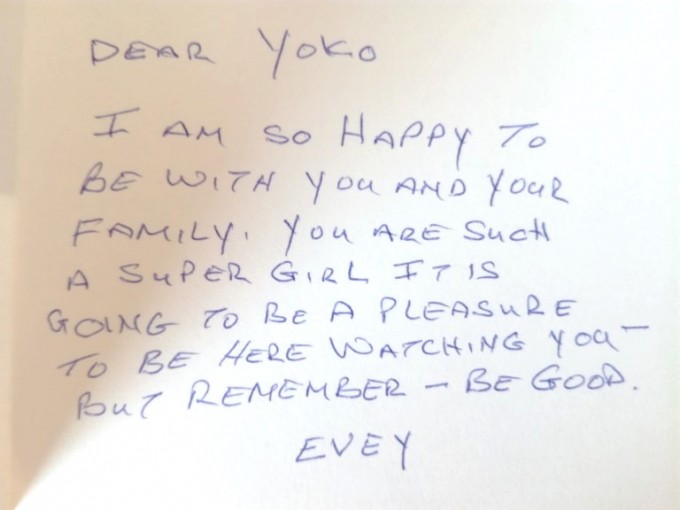 DEAR YOKO
I AM SO HAPPY TO
BE WITH YOU AND YOUR
FAMILY. YOU ARE SUCH
A SUPER GIRL IT IS
GOING TO BE A PLEASURE
TO BE HERE WATCHING YOU -
BUT REMEMBER - BE GOOD.
EVEY